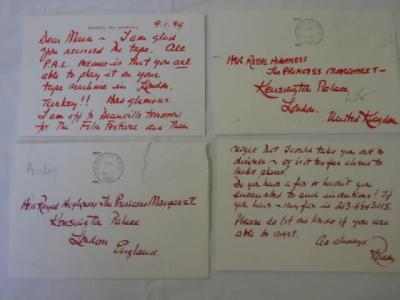 9.1.94
Dear Ma'am – I am glad
you received the tape. All
P.A.L. means is that you are
able to play it on your
tape machine in London.
Turkey!! How glamous.
I am off to Deauville tomorrow
for The Film Festival and then
Her Royal Highness
The Princess Margaret –
Kensington Palace
London.
United Kingdom
Her Royal Highness The Princess Margaret
Kensington Palace
London
England.
might But I could take you out to
dinner – or is it too far ahead to
make plans?
Do you have a fax or haven't you
to such inventions! If
you have – my fax is
Please do let me know if you are
able to
As always